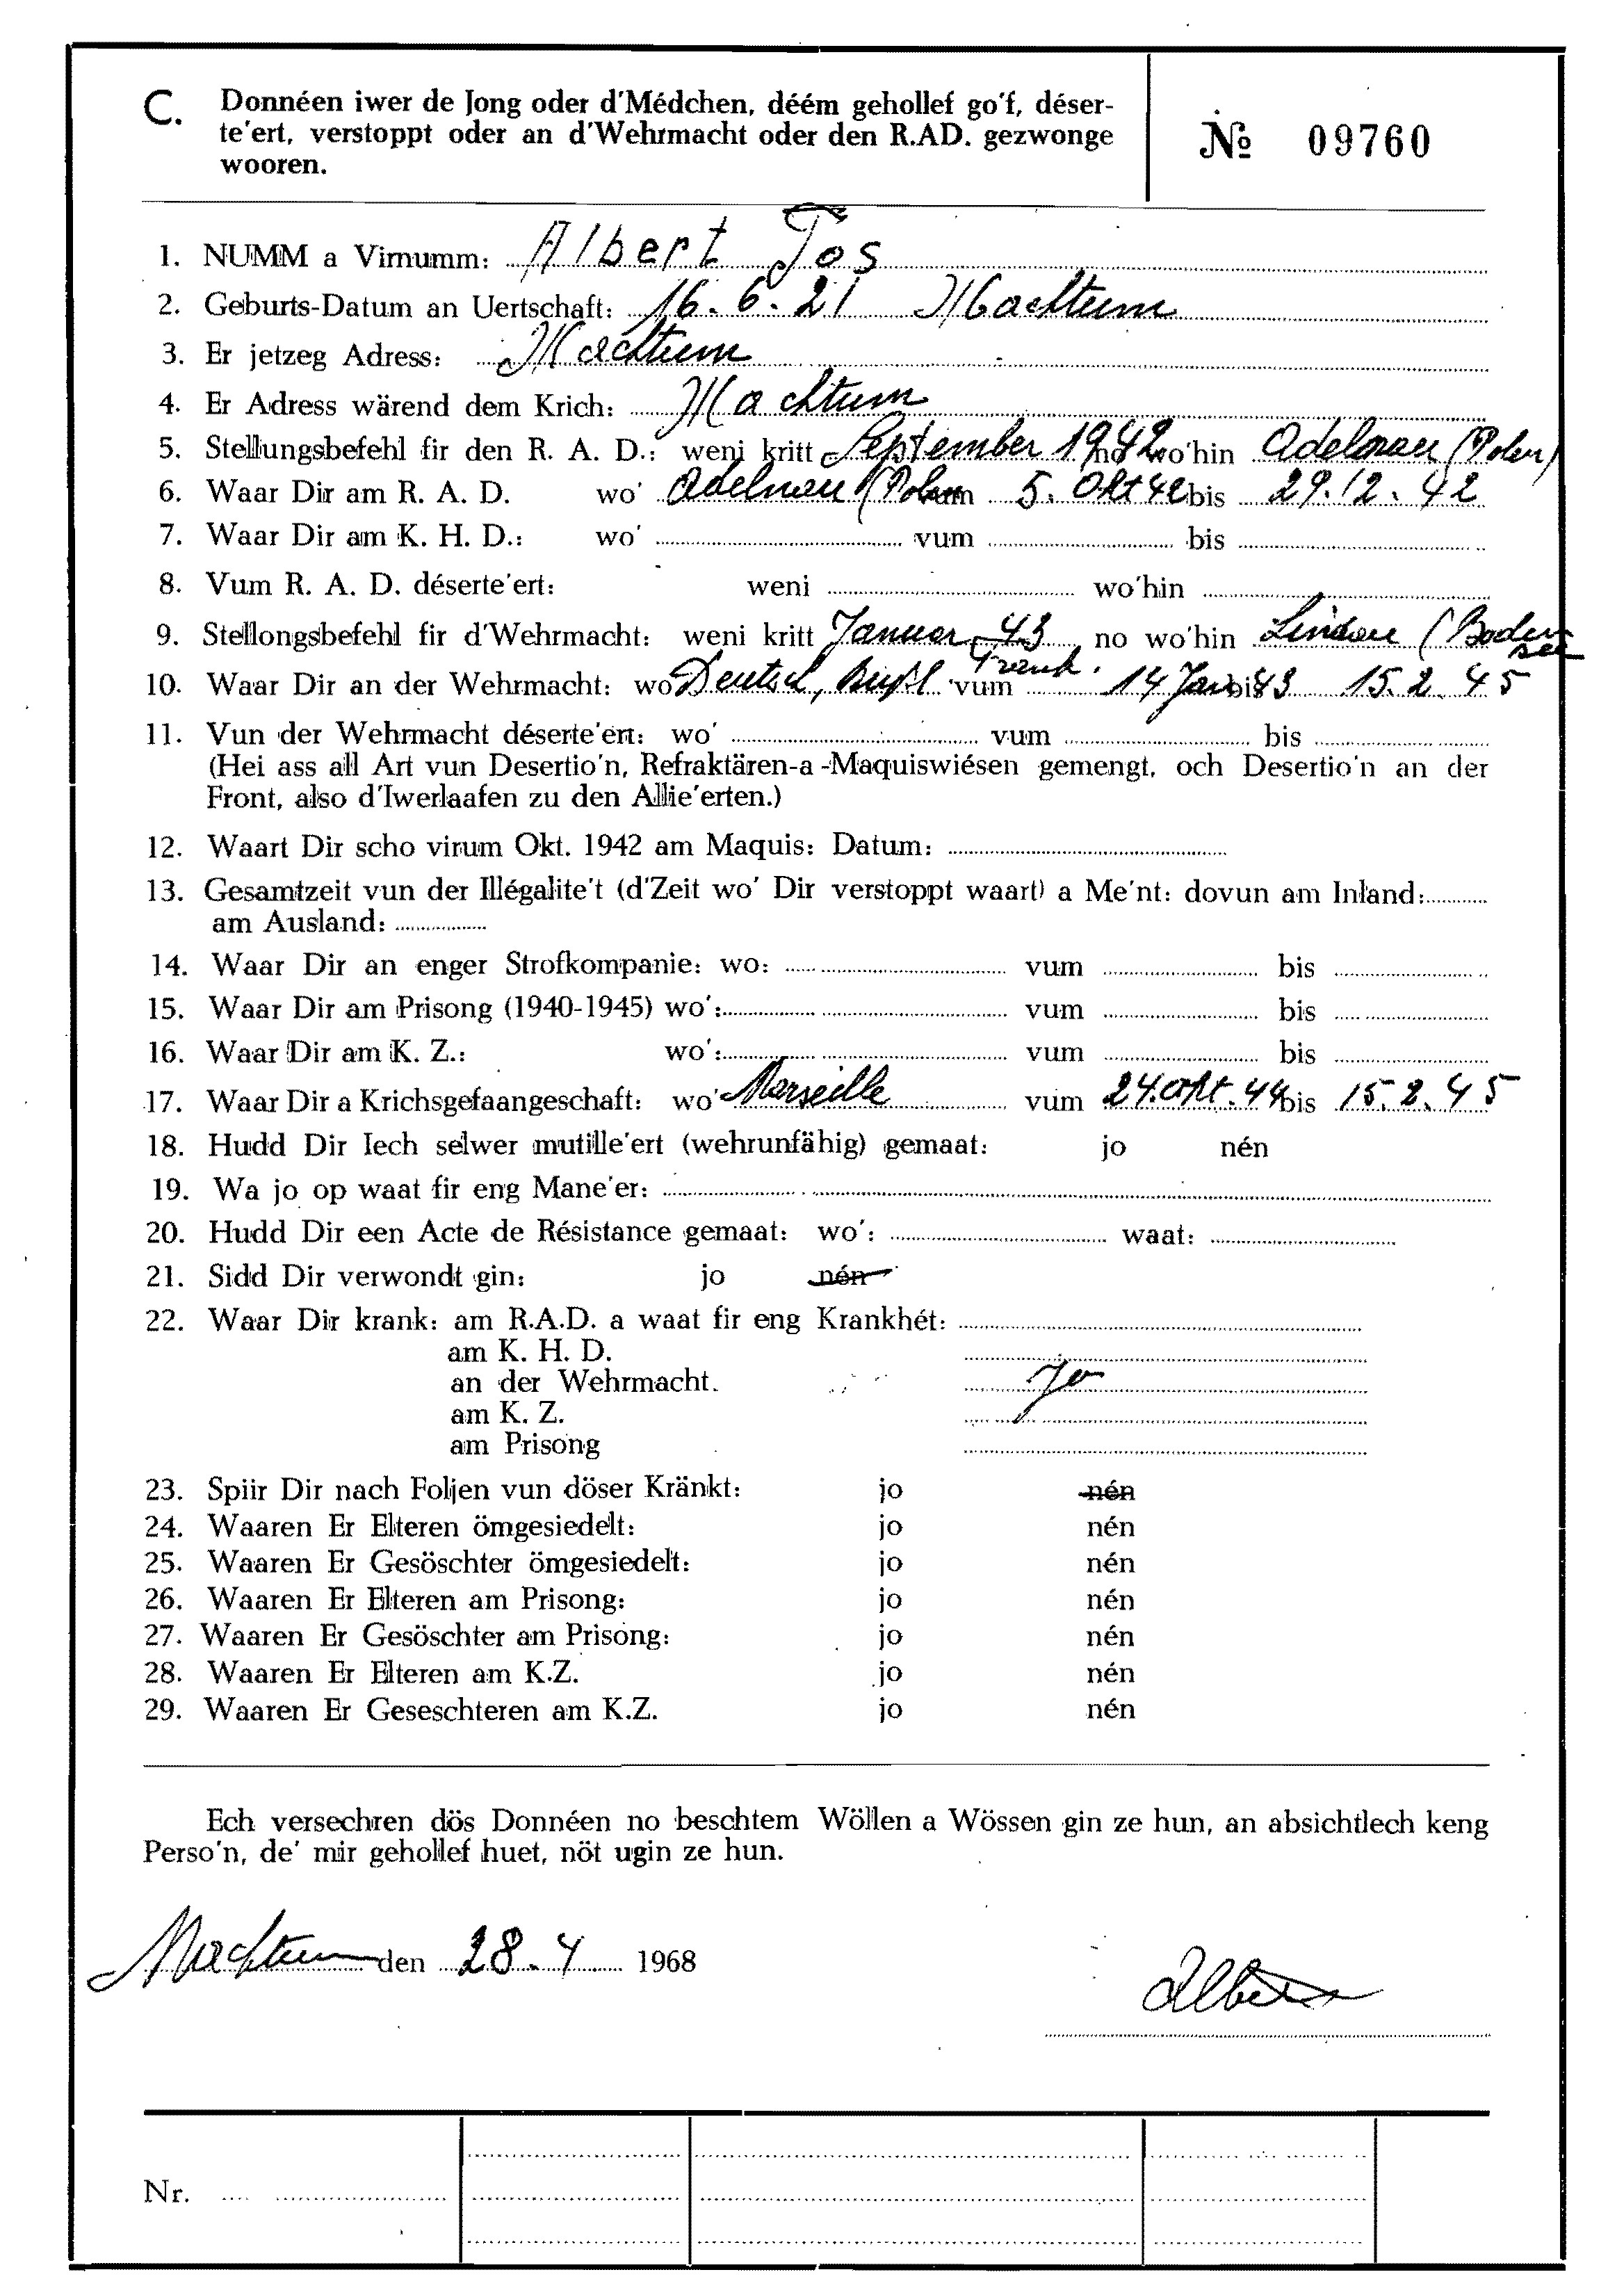 C. Donnéen iwer de Jong oder d'Médchen, déém gehollef go'f, déser-
te'ert, verstoppt oder an d'Wehrmacht oder den R.AD. gezwonge
wooren.
№ 09760
1. NUMM a Virnumm: Albert Jos
2. Geburts-Datum an Uertschaft: 16. 6. 21 Machtum
3. Er jetzeg Adress: Machtum
4. Er Adress wärend dem Krich: Machtum
5. Stellungsbefehl fir den R. A. D.: weni kritt September 1942 no wo'hin Adelnau (Polen)
6. Waar Dir am R. A. D. wo' Adelnau (Polen vum 5. Okt 42 bis 29.12.42
7. Waar Dir am K. H. D.: wo' vum bis
8. Vum R. A. D. déserte'ert: weni wo'hin
9. Stellongsbefehl fir d'Wehrmacht: weni kritt Januar 43 no wo'hin Lindau (Boden
see
10. Waar Dir an der Wehrmacht: wo Deutsch, Frank. vum 14 Jan 43 bis 15. 2. 45
11. Vun der Wehrmacht déserte'ert: wo' vum bis
(Hei ass all Art vun Desertio'n, Refraktären-a -Maquiswiésen gemengt, och Desertio'n an der
Front, also d'Iwerlaafen zu den Allie'erten.)
12. Waart Dir scho virum Okt. 1942 am Maquis: Datum:
13. Gesamtzeit vun der Illégalite't (d'Zeit wo' Dir verstoppt waart) a Me'nt: dovun am Inland:
am Ausland:
14. Waar Dir an enger Strofkompanie: wo: vum bis
15. Waar Dir am Prisong (1940-1945) wo': vum bis
16. Waar Dir am K. Z.: wo': vum bis
17. Waar Dir a Krichsgefaangeschaft: wo' Marseille vum 24. Okt. 44 bis 15. 2. 45
18. Hudd Dir Iech selwer mutille'ert (wehrunfähig) gemaat: jo nén
19. Wa jo op waat fir eng Mane'er:
20. Hudd Dir een Acte de Résistance gemaat: wo': waat:
21. Sidd Dir verwondt gin: jo nén
22. Waar Dir krank: am R.A.D. a waat fir eng Krankhét:
am K. H. D.
an der Wehrmacht. Jo
am K. Z.
am Prisong
23. Spiir Dir nach Foljen vun döser Kränkt: jo nén
24. Waaren Er Elteren ömgesiedelt: jo nén
25. Waaren Er Gesöschter ömgesiedelt: jo nén
26. Waaren Er Elteren am Prisong: jo nén
27. Waaren Er Gesöschter am Prisong: jo nén
28. Waaren Er Elteren am K.Z. jo nén
29. Waaren Er Geseschteren am K.Z. jo nén
Ech versechren dös Donnéen no beschtem Wöllen a Wössen gin ze hun, an absichtlech keng
Perso'n, de' mir gehollef huet, nöt ugin ze hun.
Machtum den 28. 4 1968
Albert
Nr.